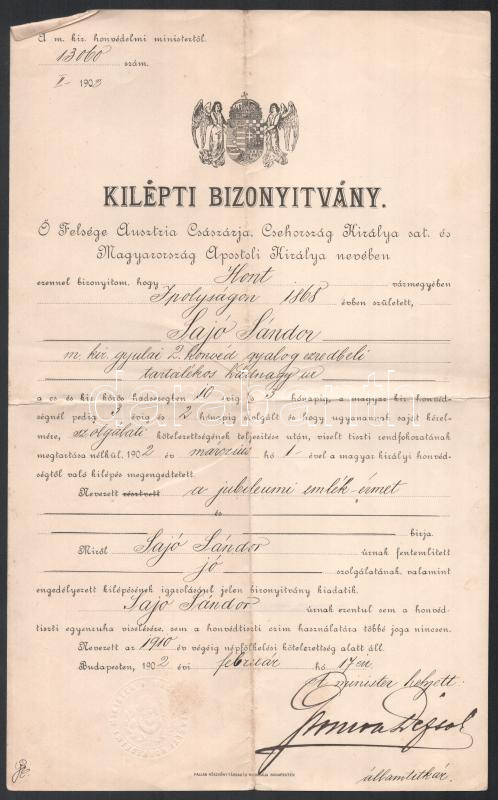 A m. kir. honvédelmi ministertől.
13060 szám.
II- 1902
KILÉPTI BIZONYITVÁNY.
Ő Felsége Ausztria Császárja, Csehország Királya sat. és
Magyarország Apostoli Királya nevében
ezennel bizonyitom, hogy Hont vármegyében
Ipolyságon 1868 évben született,
Sajó Sándor
m. kir. gyulai 2. honvéd gyalog ezredbeli
tartalékos hadnagy úr
a cs és kir. közös hadseregben 10 évig s 3 hónapig, a magyar kir honvéd-
ségnél pedig 3 évig és 2 hónapig szolgált és hogy ugyanannak saját kérel-
mére, szolgálati kötelezettségének teljesitése után, viselt tiszti rendfokozatának
megtartása nélkül, 1902 év március hó 1-ével a magyar királyi honvéd-
ségtől való kilépés megengedtetett.
Nevezett résztvett a jubileumi emlék-érmet
és
birja.
Miről Sajó Sándor úrnak fentemlitett
jó szolgálatának, valamint
engedélyezett kilépésének igazolásául jelen bizonyitvány kiadatik.
Sajó Sándor úrnak ezentul sem a honvéd-
tiszti egyenruha viselésére, sem a honvédtiszti czim használatára többé joga nincsen.
Nevezett az 1910 év végéig népfölkelési kötelezettség alatt áll.
Budapesten, 1902 évi február hó 17-én
A minister helyett:
államtitkár.
PALLAS RÉSZVÉNYTÁRSASÁG NYOMDÁJA BUDAPESTEN
darabanth